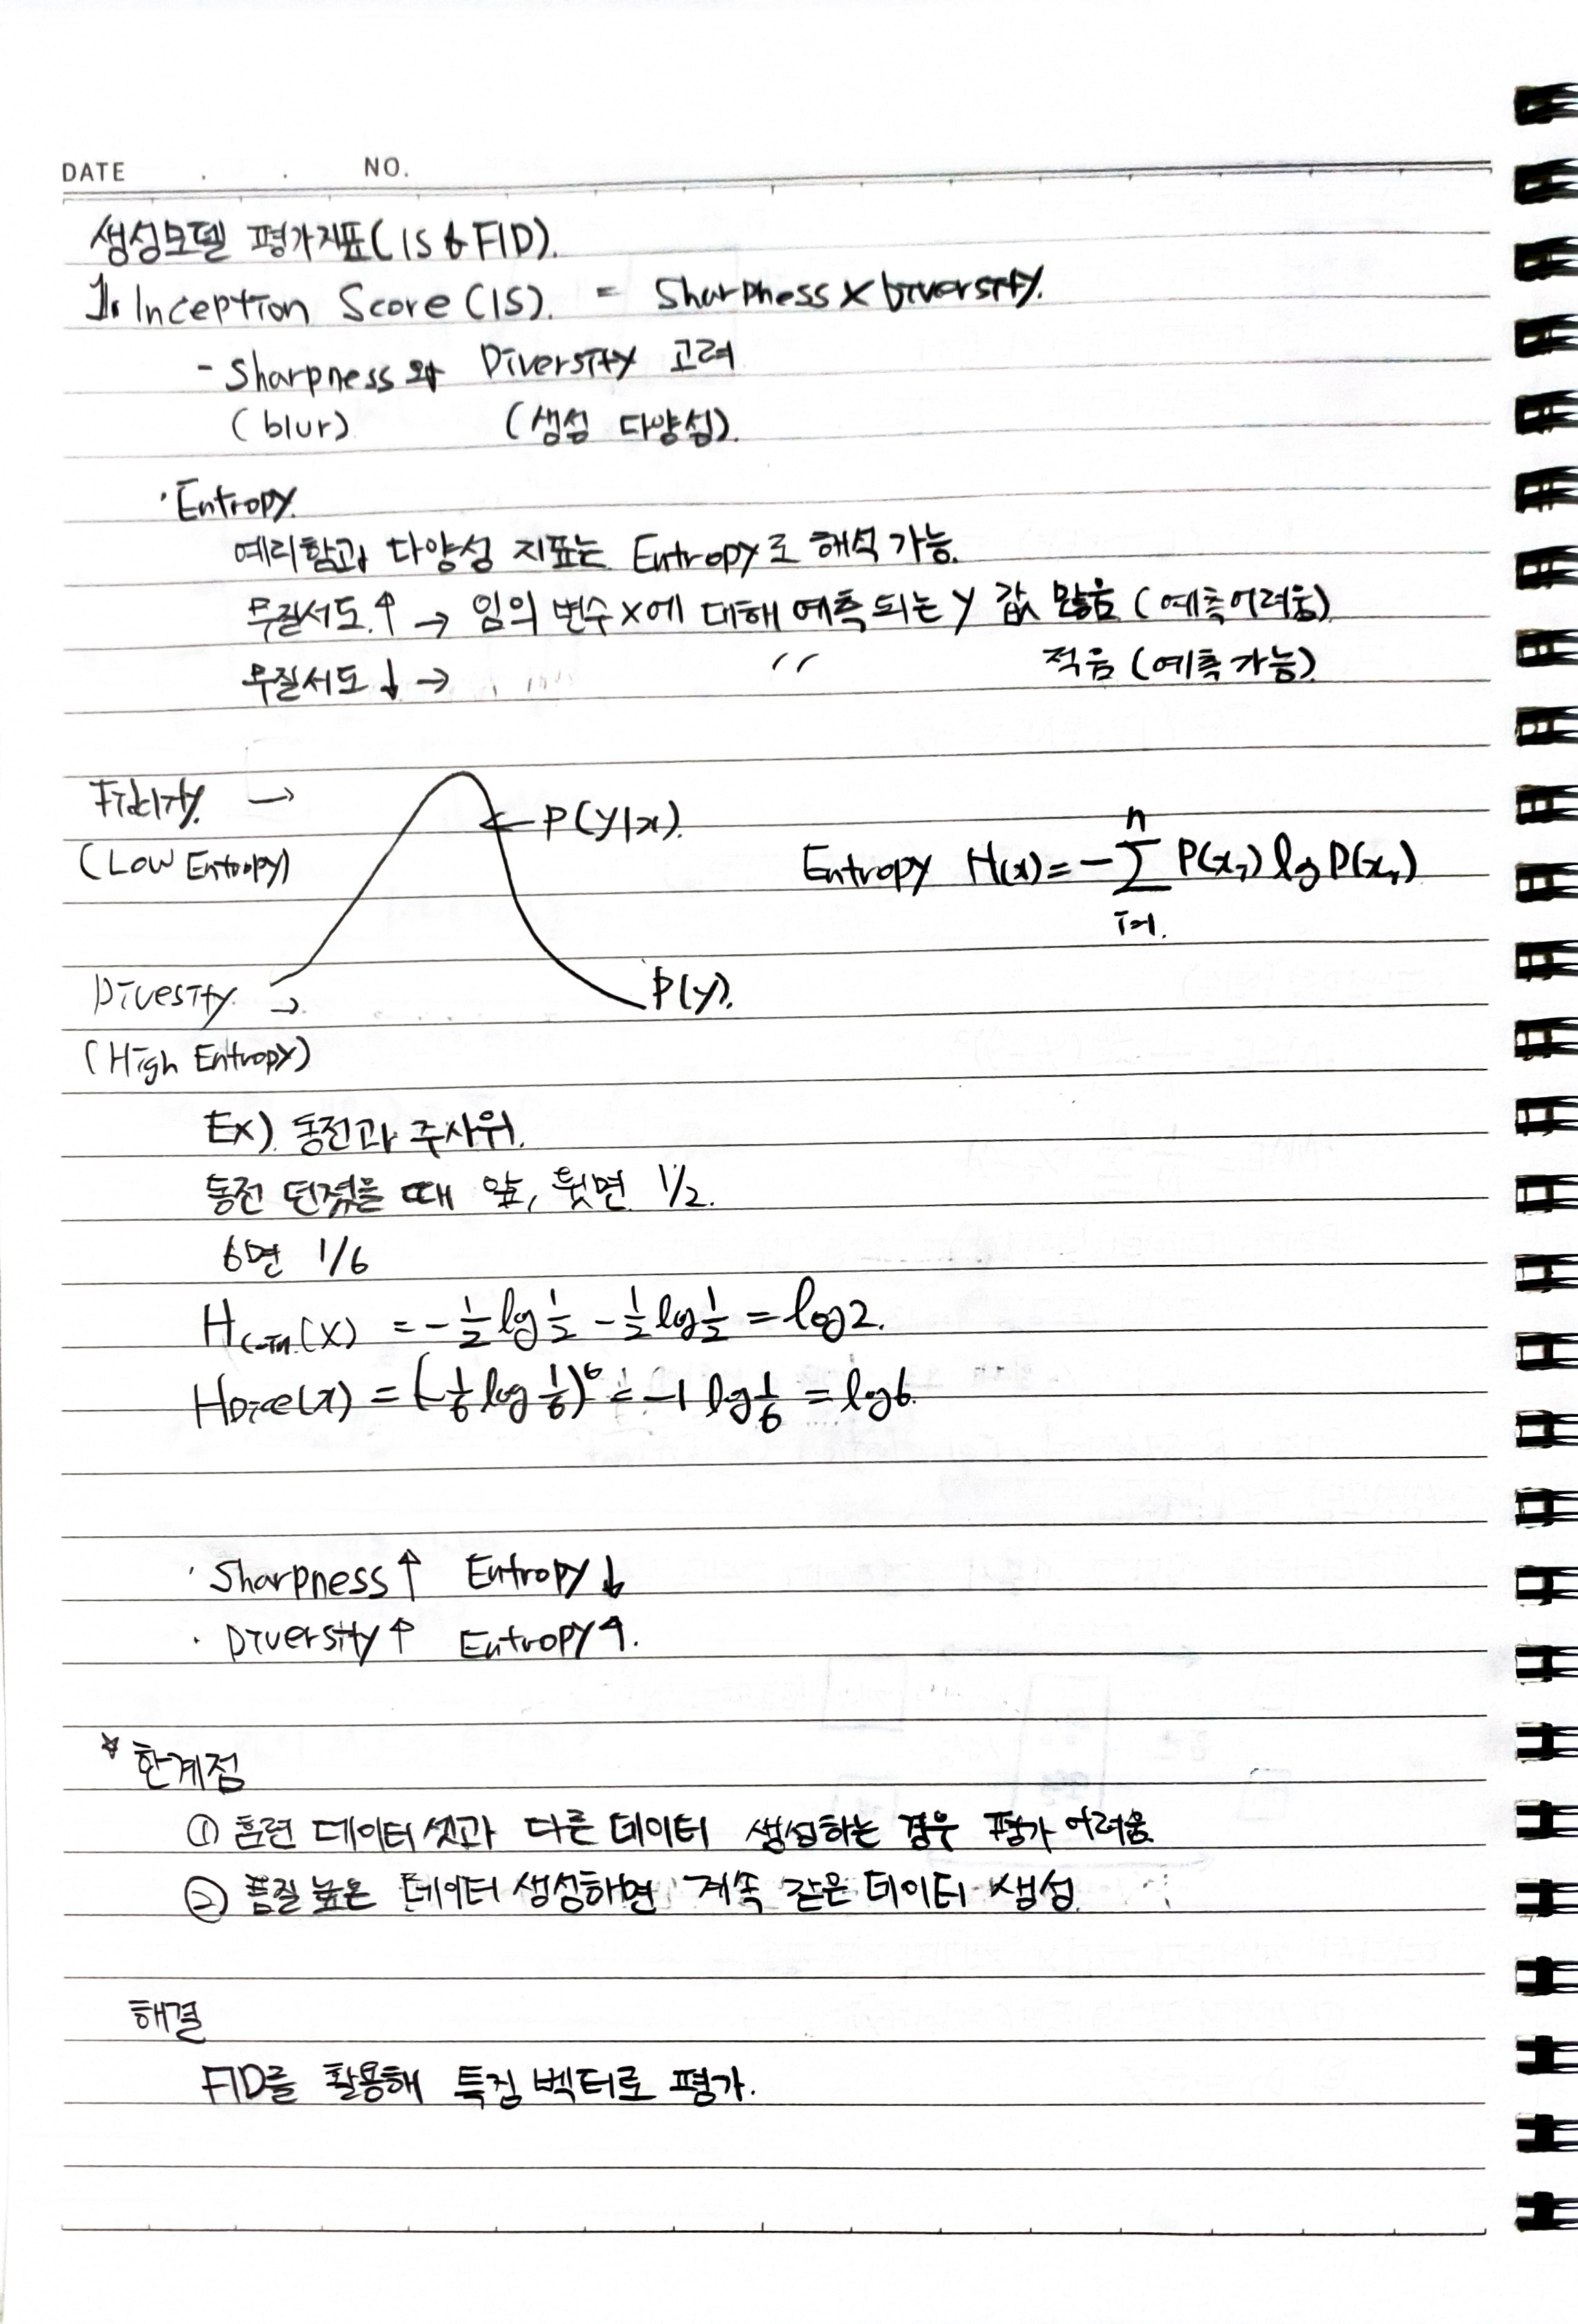 DATE . . NO.
생성모델 평가지표(IS & FID).
1. Inception Score (IS). = Sharpness × Diversity.
- Sharpness와 Diversity 고려
(blur) (생성 다양성).
· Entropy.
예리함과 다양성 지표는 Entropy로 해석 가능.
무질서도↑ → 임의 변수 x에 대해 예측되는 y 값 많음 (예측어려움)
무질서도↓ → 〃 적음 (예측 가능)
Fidelity. →
← P(y|x).
(Low Entropy)
Entropy H(x) = - Σ_{i=1}^{n} P(x_i) log P(x_i)
Divesity. →
P(y).
(High Entropy)
Ex) 동전과 주사위.
동전 던졌을 때 앞, 뒷면 1/2.
6면 1/6
H_{coin}(X) = -1/2 log 1/2 - 1/2 log 1/2 = log2.
H_{Dice}(x) = (-1/6 log 1/6)^6 = -1 log 1/6 = log6.
· Sharpness↑ Entropy↓
· Diversity↑ Entropy↑.
☆ 한계점
① 훈련 데이터셋과 다른 데이터 생성하는 경우 평가 어려움
② 품질 높은 데이터 생성하면 계속 같은 데이터 생성
해결
FID를 활용해 특징 벡터로 평가.